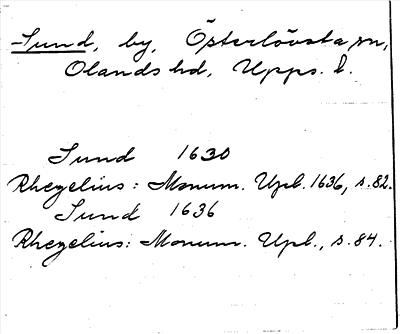 Sund, by, Österlövsta sn,
Olands hd, Upps. l.
Sund 1630
Rhezelius: Monum. Upl. 1636, s. 82.
Sund 1636
Rhezelius: Monum. Upl., s. 84.